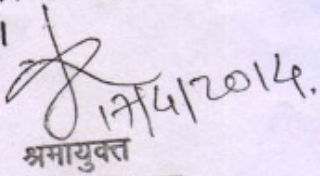 17/4/2014.
श्रमायुक्त